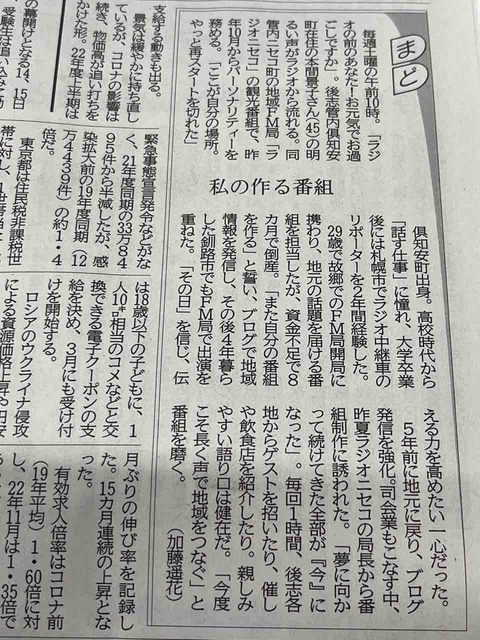 まど
毎週土曜の午前10時。「ラジ
オの前のあなた！お元気でお過
ごしですか」。後志管内倶知安
町在住の本間景子さん(45)の明
るい声がラジオから流れる。同
管内ニセコ町の地域FM局「ラ
ジオニセコ」の観光番組で、昨
年10月からパーソナリティーを
務める。「ここが自分の場所。
やっと再スタートを切れた」
私の作る番組
倶知安町出身。高校時代から
「話す仕事」に憧れ、大学卒業
後には札幌市でラジオ中継車の
リポーターを2年間経験した。
29歳で故郷でのFM局開局に
携わり、地元の話題を届ける番
組を担当したが、資金不足で8
カ月で倒産。「また自分の番組
を作る」と誓い、ブログで地域
情報を発信し、その後4年暮ら
した釧路市でもFM局で出演を
重ねた。「その日」を信じ、伝
える力を高めたい一心だった。
5年前に地元に戻り、ブログ
発信を強化。司会業もこなす中、
昨夏ラジオニセコの局長から番
組制作に誘われた。「夢に向か
って続けてきた全部が『今』に
なった」。毎回1時間、後志各
地からゲストを招いたり、催し
や飲食店を紹介したり。親しみ
やすい語り口は健在だ。「今度
こそ長く声で地域をつなぐ」と
番組を磨く。（加藤遥花）
支給する動きも出る。
景気は緩やかに持ち直し
ているが、コロナの影響は
続き、物価高が追い打ちを
かけた形。22年度上半期は
の幕開けとなる14、15日
緊急事態宣言発令などがな
く、21年度同期の33万84
95件から半減したが、感
染拡大前の19年度同期（12
万4439件）の約1・4
倍だ。
東京都は住民税非課税世
帯に対し、1世帯当
は18歳以下の子どもに、1
人10㌔相当のコメなどと交
換できる電子クーポンの支
給を決め、3月にも受け付
けを開始する。
ロシアのウクライナ侵攻
による資源価格上昇や円安
月ぶりの伸び率を記録し
た。15カ月連続の上昇とな
った。
有効求人倍率はコロナ前
（19年平均）1・60倍に対
し、22年11月は1・35倍で